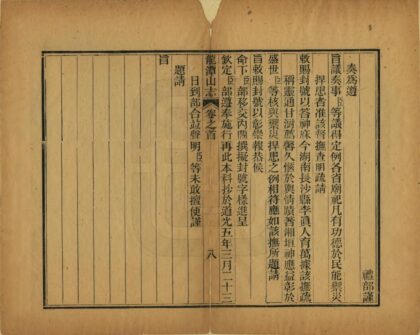 禮部謹
奏為遵
旨議奏事臣等議得定例各省廟祀凡有功德於民能禦災
捍患者准該督撫查明疏請
敕賜封號以答神庥今湖南長沙縣李真人育萬據該撫疏
稱靈通甘澍薦馨久愜於輿情蹟著湘垣神應益彰於
盛世臣等核與禦災捍患之例相符應如該撫所題請
旨敕賜封號以彰崇報恭候
命下臣部移交內閣撰擬封號字樣進呈
欽定臣部遵奉施行再此本科抄於道光五年三月二十三
龍潭山志 卷之首 八
日到部合並聲明臣等未敢擅便謹
題請
旨